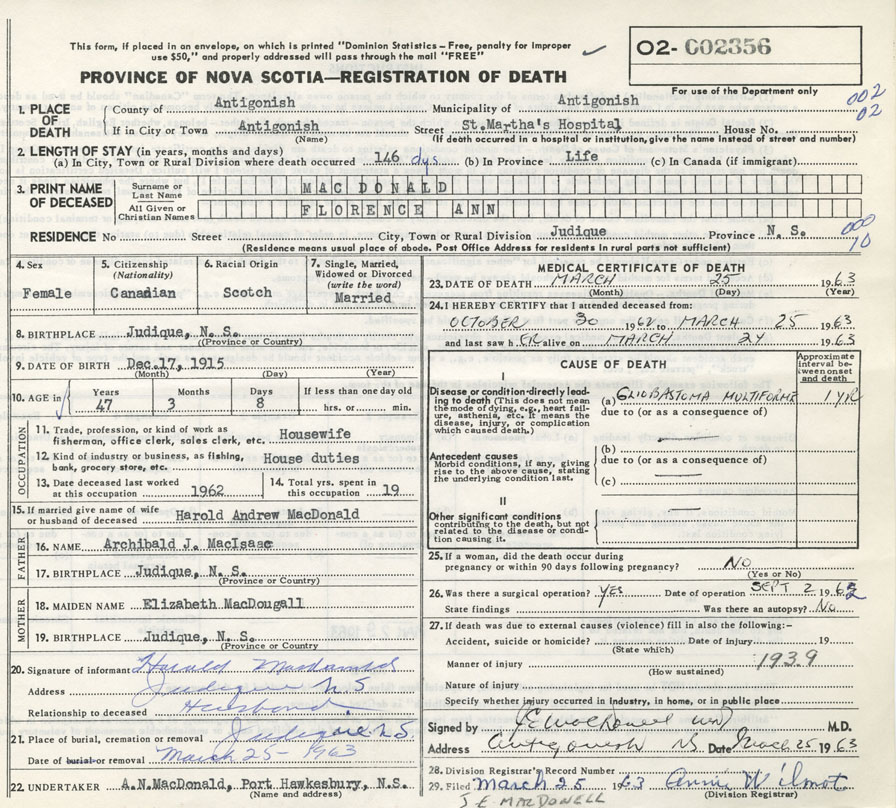 This form, if placed in an envelope, on which is printed "Dominion Statistics - Free, penalty for improper
use $50," and properly addressed will pass through the mail "FREE"
O2- C02356
PROVINCE OF NOVA SCOTIA—REGISTRATION OF DEATH
For use of the Department only
1. PLACE OF DEATH County of Antigonish Municipality of Antigonish 002
If in City or Town Antigonish Street St.Martha's Hospital House No. 02
(Name) (If death occurred in a hospital or institution, give the name instead of street and number)
2. LENGTH OF STAY (in years, months and days)
(a) In City, Town or Rural Division where death occurred 146 dys. (b) In Province Life (c) In Canada (if immigrant)
3. PRINT NAME OF DECEASED Surname or Last Name MAC DONALD
All Given or Christian Names FLORENCE ANN
RESIDENCE No Street City, Town or Rural Division Judique Province N. S. 000 10
(Residence means usual place of abode. Post Office Address for residents in rural parts not sufficient)
4. Sex Female
5. Citizenship (Nationality) Canadian
6. Racial Origin Scotch
7. Single, Married, Widowed or Divorced (write the word) Married
8. BIRTHPLACE Judique, N. S.
(Province or Country)
9. DATE OF BIRTH Dec.17, 1915
(Month) (Day) (Year)
10. AGE in Years 47 Months 3 Days 8 If less than one day old hrs. or min.
OCCUPATION
11. Trade, profession, or kind of work as fisherman, office clerk, sales clerk, etc. Housewife
12. Kind of industry or business, as fishing, bank, grocery store, etc. House duties
13. Date deceased last worked at this occupation 1962
14. Total yrs. spent in this occupation 19
15. If married give name of wife or husband of deceased Harold Andrew MacDonald
FATHER
16. NAME Archibald J. MacIsaac
17. BIRTHPLACE Judique, N. S.
(Province or Country)
MOTHER
18. MAIDEN NAME Elizabeth MacDougall
19. BIRTHPLACE Judique, N. S.
(Province or Country
20. Signature of informant Harold MacDonald
Address Judique N S
Relationship to deceased Husband
21. Place of burial, cremation or removal Judique N.S.
Date of burial or removal March 25 - 1963
22. UNDERTAKER A.N.MacDonald, Port Hawkesbury, N.S.
(Name and address)
MEDICAL CERTIFICATE OF DEATH
23. DATE OF DEATH MARCH 25 1963
(Month) (Day) (Year)
24. I HEREBY CERTIFY that I attended deceased from:
OCTOBER 30 1962 to MARCH 25 1963
and last saw h ER alive on MARCH 24 1963
CAUSE OF DEATH
Approximate interval between onset and death
I
Disease or condition directly leading to death (This does not mean the mode of dying, e.g., heart failure, asthenia, etc. It means the disease, injury, or complication which caused death.)
(a) GLIOBASTOMA MULTIFORME 1 YR
due to (or as a consequence of)
Antecedent causes
Morbid conditions, if any, giving rise to the above cause, stating the underlying condition last.
(b)
due to (or as a consequence of)
(c)
II
Other significant conditions
contributing to the death, but not related to the disease or condition causing it.
25. If a woman, did the death occur during pregnancy or within 90 days following pregnancy? NO
(Yes or No)
26. Was there a surgical operation? YES Date of operation SEPT 2 1962
State findings Was there an autopsy? No
27. If death was due to external causes (violence) fill in also the following:—
Accident, suicide or homicide? Date of injury 19
(State which)
Manner of injury 193.9
(How sustained)
Nature of injury
Specify whether injury occurred in industry, in home, or in public place
Signed by J E MacDonell M.D.
Address Antigonish NS Date March 25 1963
28. Division Registrar's Record Number
29. Filed March 25 1963 Annie Wilmot
(Division Registrar)
J. E. MACDONELL